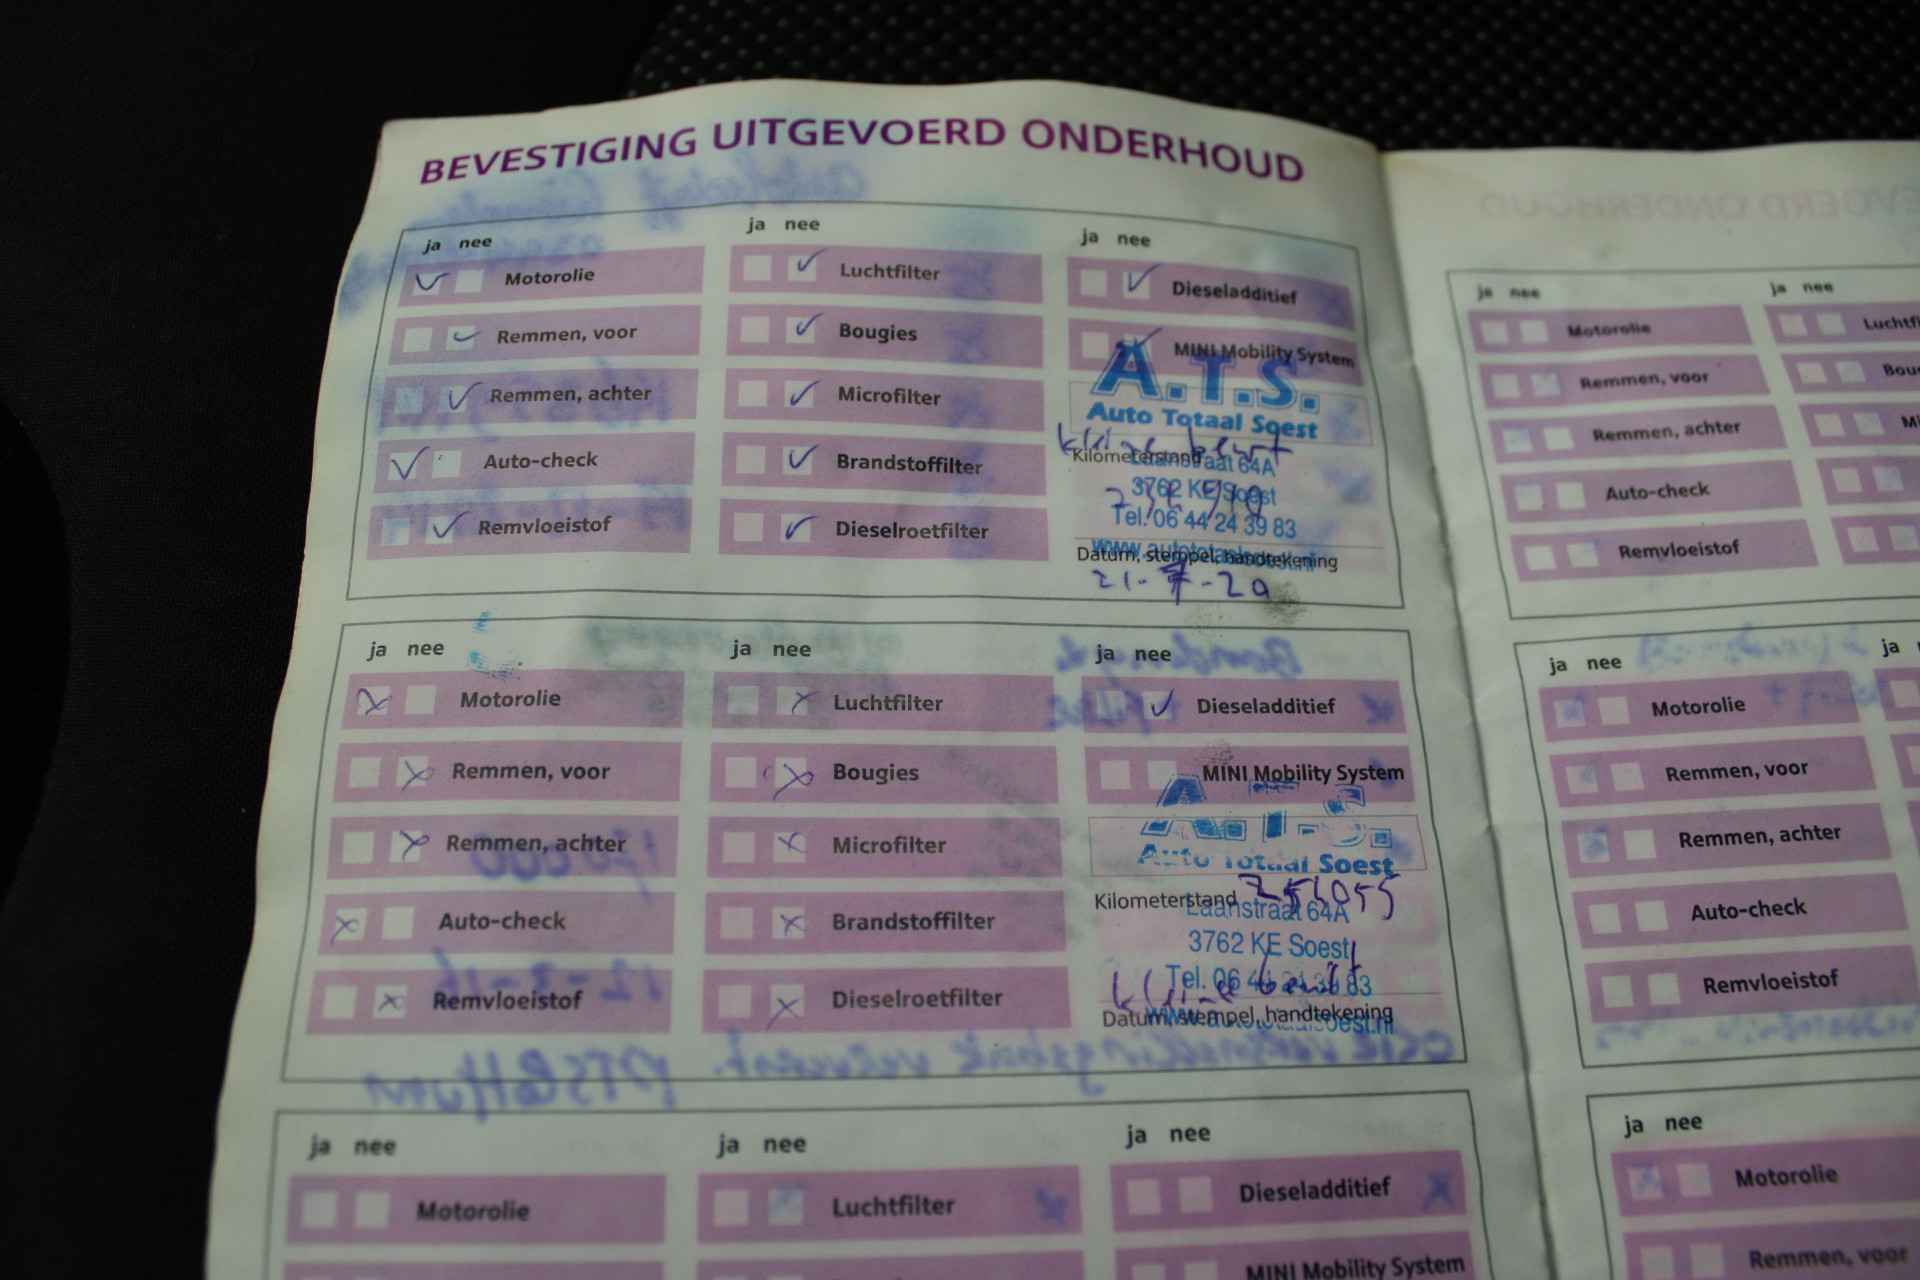 BEVESTIGING UITGEVOERD ONDERHOUD
ja nee
Motorolie
Remmen, voor
Remmen, achter
Auto-check
Remvloeistof
ja nee
Luchtfilter
Bougies
Microfilter
Brandstoffilter
Dieselroetfilter
ja nee
Dieseladditief
MINI Mobility System
A.T.S.
Auto Totaal Soest
kleine beurt
Kilometerstand
Laanstraat 64A
3762 KE Soest
Tel. 06 44 24 39 83
www.autototaalsoest.nl
Datum, stempel, handtekening
21-7-20
ja nee
Motorolie
Remmen, voor
Remmen, achter
Auto-check
Remvloeistof
ja nee
Luchtfilter
Bougies
Microfilter
Brandstoffilter
Dieselroetfilter
ja nee
Dieseladditief
MINI Mobility System
Auto Totaal Soest
Kilometerstand
Laanstraat 64A
3762 KE Soest
Tel. 06 44 24 39 83
kleine beurt
Datum, stempel, handtekening
www.autototaalsoest.nl
ja nee
Motorolie
ja nee
Luchtfilter
ja nee
Dieseladditief
MINI Mobility System
ja nee
Motorolie
Remmen, voor
Remmen, achter
Auto-check
Remvloeistof
ja nee
ja nee
Motorolie
Remmen, voor
Remmen, achter
Auto-check
Remvloeistof
ja
ja nee
Motorolie
Remmen, voor